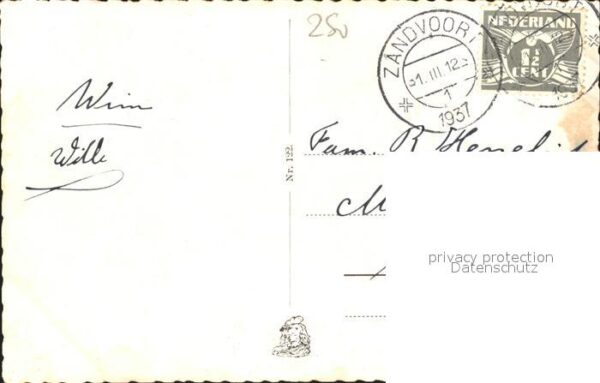 250
ZANDVOORT
31.III.12.
1
1937
NEDERLAND
1½
CENT
Wim
Wille
Nr. 122.
Fam. R
privacy protection
Datenschutz